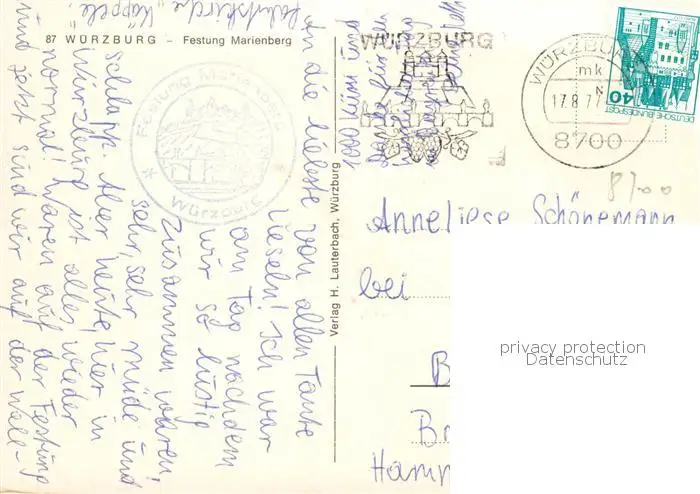 87 WÜRZBURG – Festung Marienberg
An die liebste von allen Tante
Lieseln! Ich war
am Tag nachdem
wir so lustig
zusammen waren,
sehr, sehr müde und
schlapp. Aber heute, hier in
Würzburg ist alles wieder
normal! Waren auf der Festung
und jetzt sind wir auf der Wall-
fahrtskirche „Käppele“.
1000
Festung Marienberg
Würzburg
Verlag H. Lauterbach, Würzburg
WÜRZBURG
WÜRZBURG
mk
17.8.77
8700
DEUTSCHE BUNDESPOST
40
8,00
Anneliese Schönemann
bei
B
Br
Hamm
privacy protection
Datenschutz